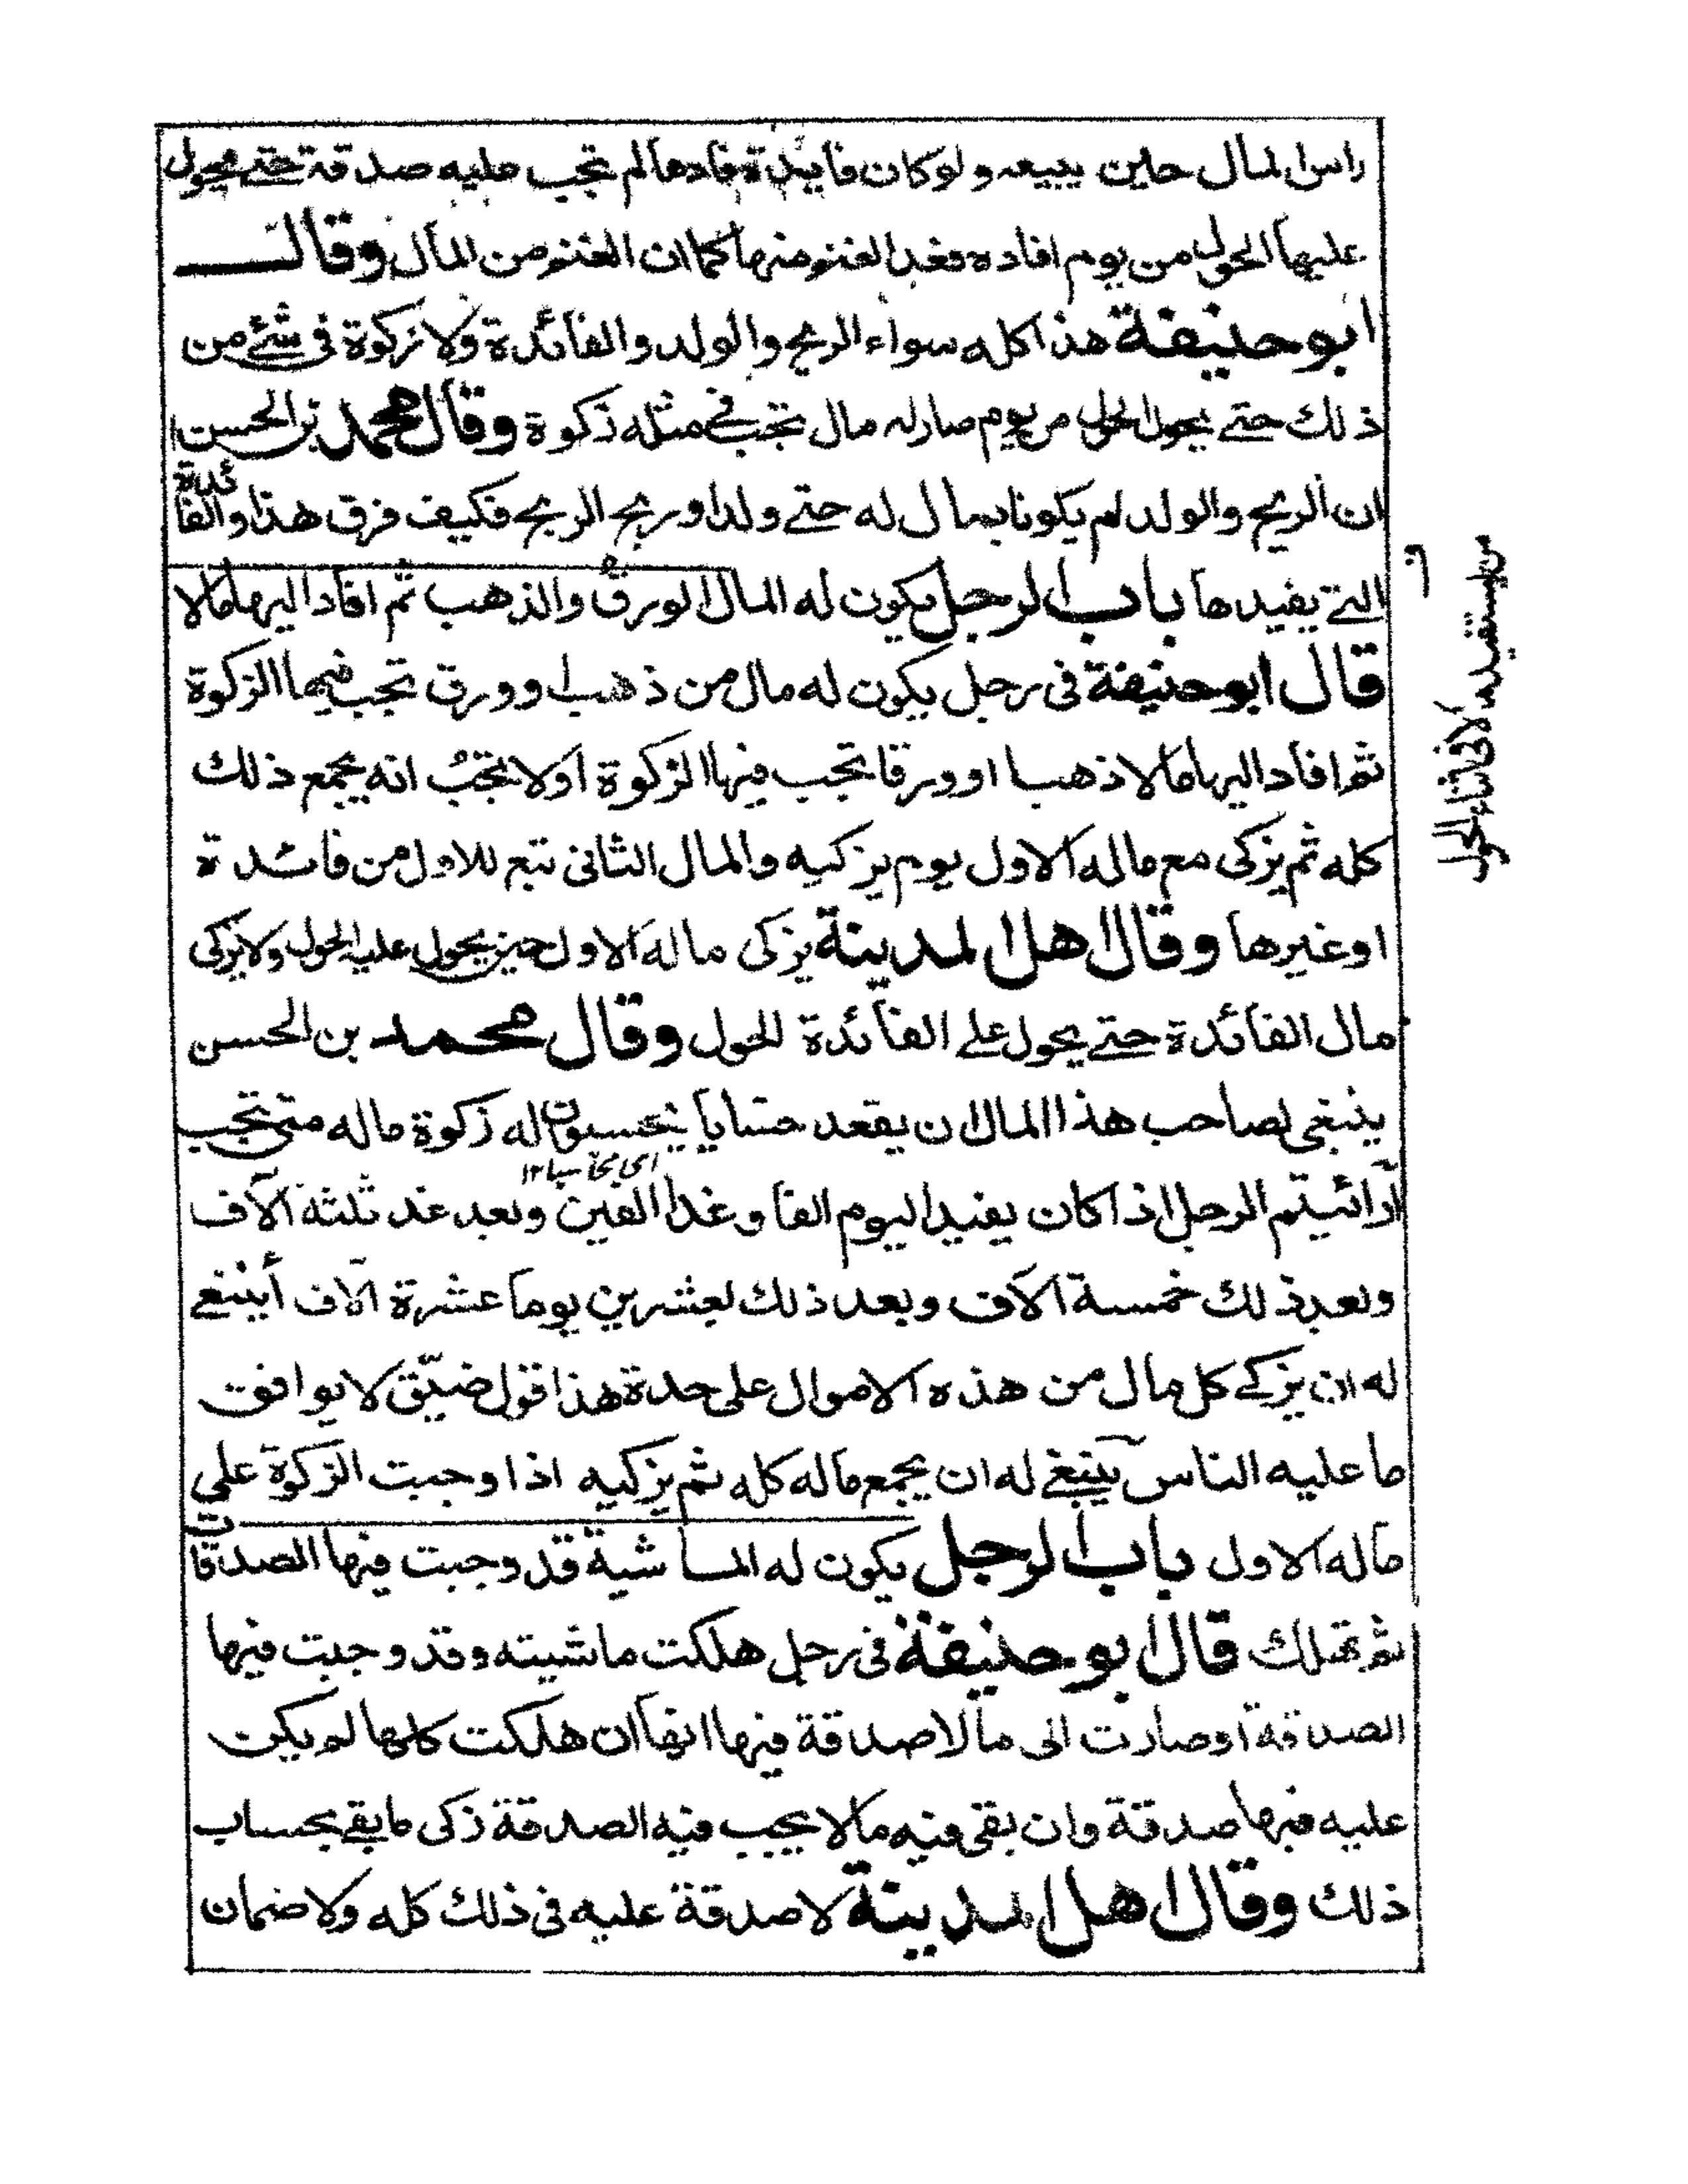 راس المال حين يبيعه ولو كان فايدة فادها لم تجب عليه صدقة حتے يحول
عليها الحول من يوم افاده فغذا الغنم منها كما ان الغنم من المال وقال
ابو حنيفة هذا كله سواء الربح والولد والفائدة ولا زكوة فى شئے من
ذلك حتے يحول الحول من يوم صار له مال تجب فے مثله زكوة وقال محمد بن الحسن
ان الربح والولد لم يكونا بمال له حتے ولدا وربح الربح فكيف فرق هذا والفائدة
التے يفيدها باب الرجل يكون له المال الورق والذهب ثم افاد اليها مالا
قال ابو حنيفة فى رجل يكون له مال من ذهب او ورق تجب فيهما الزكوة
ثم افاد اليها مالا ذهبا او ورقا تجب فيها الزكوة اولا تجب انه يجمع ذلك
كله ثم يزكى مع ماله الاول يوم يزكيه والمال الثانى تبع للاول من فائدة
او غيرها وقال اهل المدينة يزكى ماله الاول حين يحول عليه الحول ولا يزكى
مال الفائدة حتے يحول علے الفائدة الحول وقال محمد بن الحسن
ينبغى لصاحب هذا المال ان يقعد حسابا يحسبون له زكوة ماله متى تجب
اى محاسبا ١٢
أرائيتم الرجل اذا كان يفيد اليوم الفا وغدا الفين وبعد غد ثلثة آلاف
وبعد ذلك خمسة آلاف وبعد ذلك لعشرين يوما عشرة آلاف أينبغے
له ان يزكے كل مال من هذه الاموال على حدة هذا قول ضيّق لا يوافق
ما عليه الناس ينبغے له ان يجمع ماله كله ثم يزكيه اذا وجبت الزكوة على
ماله الاول باب الرجل يكون له الماشية قد وجبت فيها الصدقات
ثم تهلك قال ابو حنيفة فى رجل هلكت ماشيته وقد وجبت فيها
الصدقة او صارت الى ما لا صدقة فيها انها ان هلكت كلها لم يكن
عليه فيها صدقة وان بقى فيه ما لا يجب فيه الصدقة زكى ما بقے بحساب
ذلك وقال اهل المدينة لا صدقة عليه فى ذلك كله ولا ضمان
من يستفيده لا فى اثناء الحول